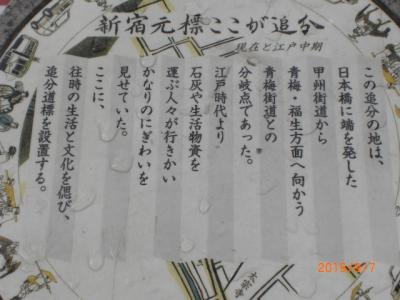 新宿元標ここが追分
現在と江戸中期
この追分の地は、
日本橋に端を発した
甲州街道から
青梅・福生方面へ向かう
青梅街道との
分岐点であった。
江戸時代より
石灰や生活物資を
運ぶ人々が行きかい
かなりのにぎわいを
見せていた。
ここに、
往時の生活と文化を偲び、
追分道標を設置する。
太宗寺